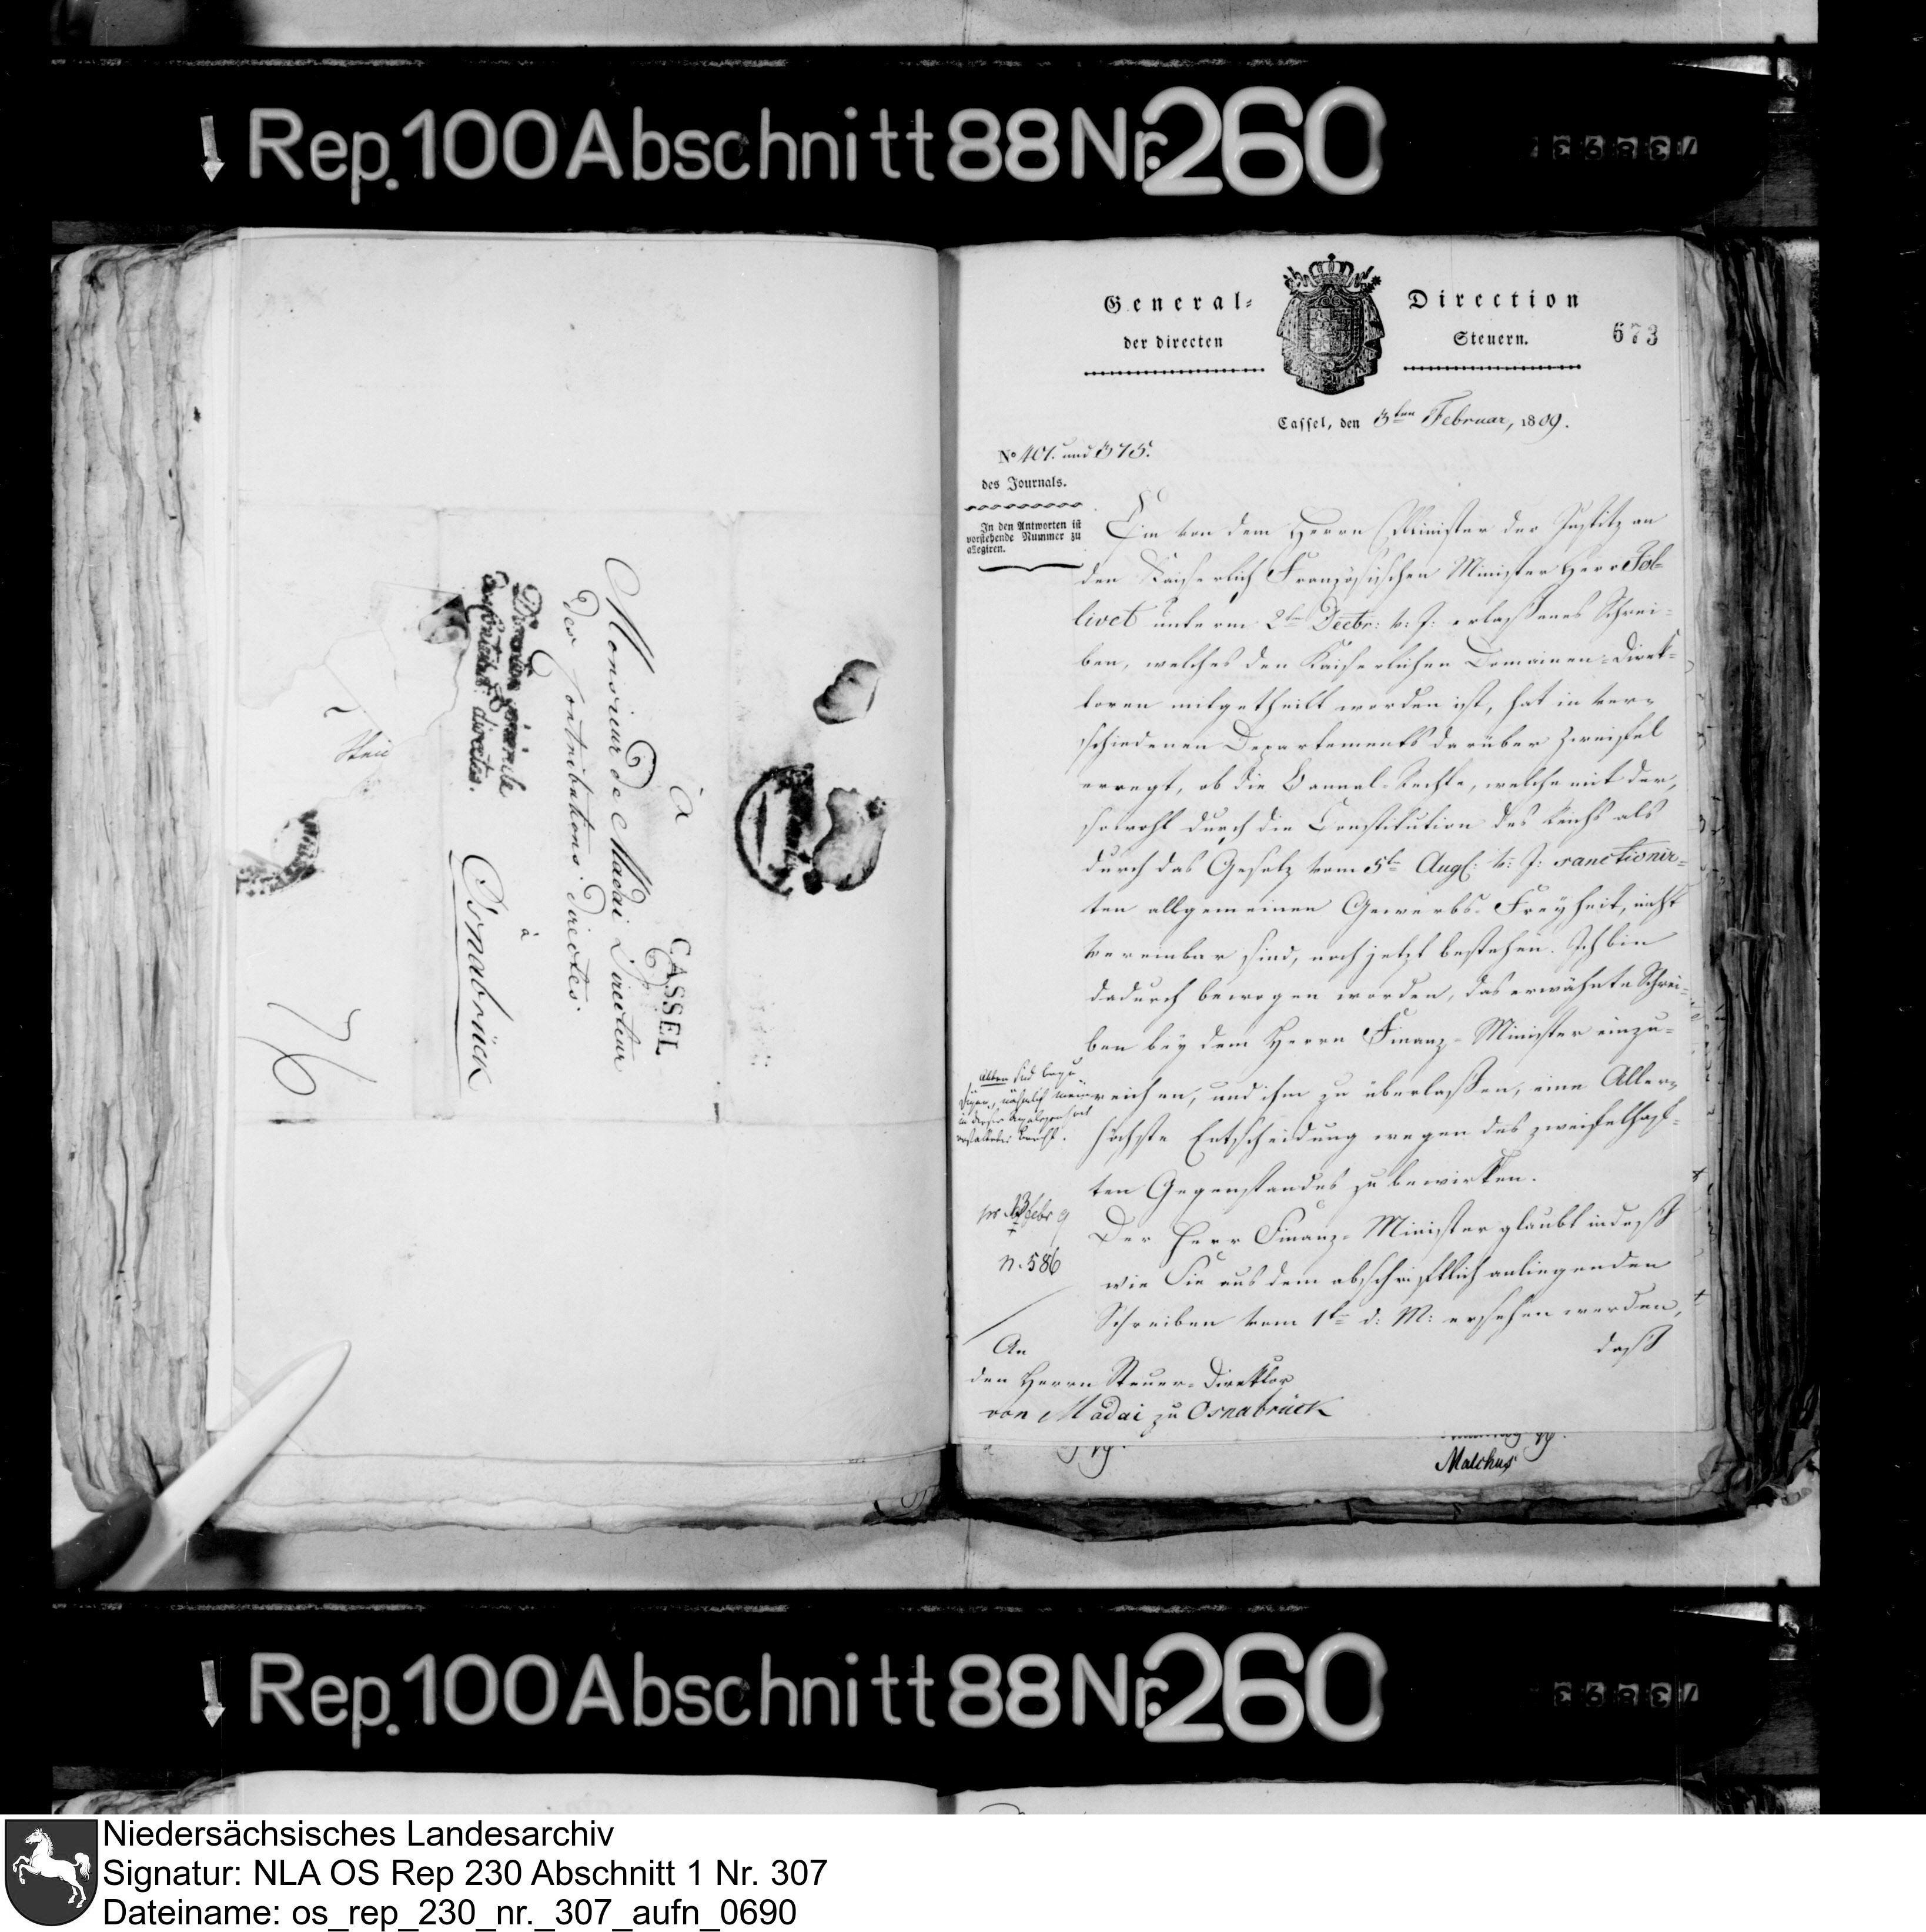 Rep. 100 Abschnitt 88 Nr. 260
Direction générale
des contribut: directes.
à
CASSEL
Monsieur de Madai Directeur
des contributions directes.
à
Osnabrück
General-Direction
der directen Steuern.
673
Cassel, den 3ten Februar, 1809.
No 401. und 375.
des Journals.
In den Antworten ist
vorstehende Nummer zu
allegiren.
Ein von dem Herrn Minister der Justitz an
den Kaiserlich Französischen Minister Herr Jol-
livet unterm 2ten Decbr: v: J: erlaßenes Schrei-
ben, welches den Kaiserlichen Domainen-Direk-
toren mitgetheilt worden ist, hat in ver-
schiedenen Departements darüber Zweifel
erregt, ob die Bannal-Rechte, welche mit der,
sowohl durch die Constitution des Reichs als
durch das Gesetz vom 5ten Aug: v: J: sanctionir-
ten allgemeinen Gewerbs-Freyheit, nicht
vereinbar sind, noch jetzt bestehen. Ich bin
dadurch bewogen worden, das erwähnte Schrei-
ben bey dem Herrn Finanz-Minister einzu-
reichen, und ihm zu überlaßen, eine Aller-
höchste Entscheidung wegen des zweifelhaf-
ten Gegenstandes zu bewirken.
Der Herr Finanz-Minister glaubt indeß
wie Sie aus dem abschriftlich anliegenden
Schreiben vom 1ten d: M: ersehen werden,
daß
n. 586
An
den Herrn Steuer-Direktor
von Madai zu Osnabrück
Malchus
Rep. 100 Abschnitt 88 Nr. 260
Niedersächsisches Landesarchiv
Signatur: NLA OS Rep 230 Abschnitt 1 Nr. 307
Dateiname: os_rep_230_nr._307_aufn_0690